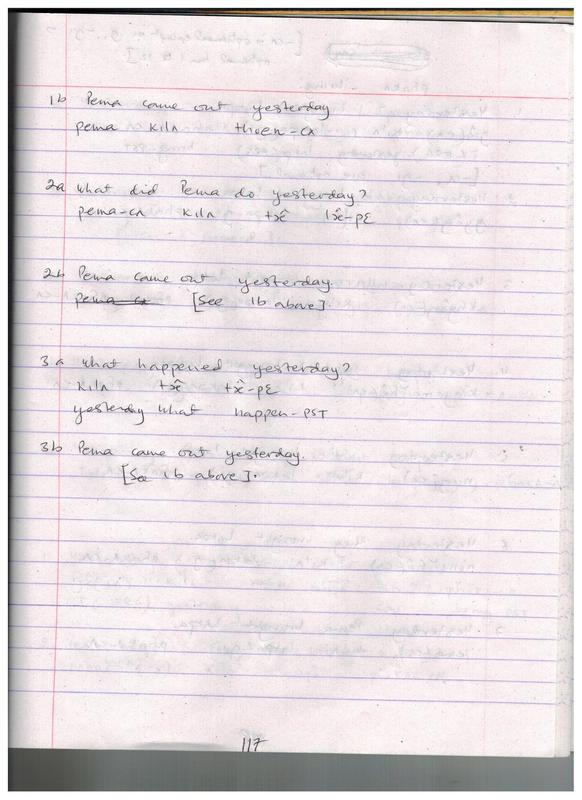 1b Pema came out yesterday
pema kilʌ thoen-cʌ
2a What did Pema do yesterday?
pema-cʌ kilʌ -pɛ
2b Pema came out yesterday.
pema cʌ [See 1b above].
3a What happened yesterday?
kilʌ -pɛ
yesterday what happen-PST
3b Pema came out yesterday.
[See 1b above].
117